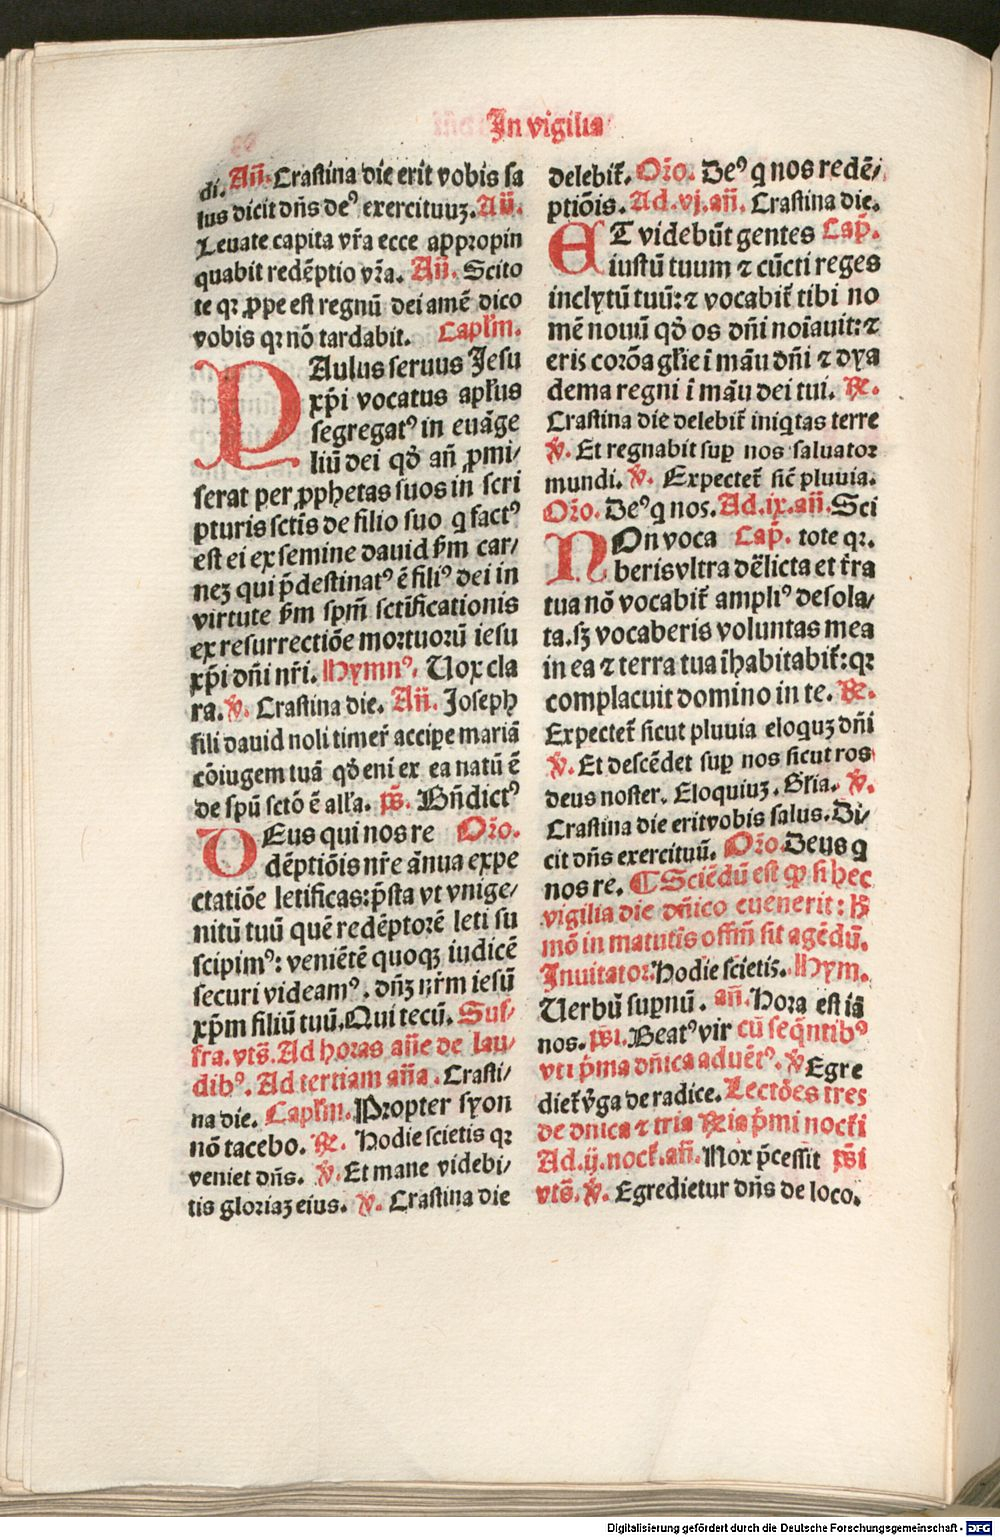 In vigilia
di. Añ. Crastina die erit vobis sa
lus dicit dñs deꝰ exercituuꝫ. Añ.
Leuate capita vr̃a ecce appropin
quabit redẽptio vr̃a. Añ. Scito
te qꝛ ꝓpe est regnũ dei amẽ dico
vobis qꝛ nõ tardabit. Capl̃m.
PAulus seruus Jesu
xp̃i vocatus apl̃us
segregatꝰ in euãge
liũ dei qđ añ ꝓmi/
serat per ꝓphetas suos in scri
pturis sctĩs de filio suo q factꝰ
est ei ex semine dauid ẜm car/
neꝫ qui p̃destinatꝰ ẽ filiꝰ dei in
virtute ẜm spm̃ sctĩficationis
ex resurrectiõe mortuorũ iesu
xp̃i dñi nr̃i. Hymnꝰ. Uox cla
ra. ℣. Crastina die. Añ. Joseph
fili dauid noli timer̃ accipe mariã
cõiugem tuã qđ eni ex ea natũ ẽ
de spũ sctõ ẽ all̃a. ps̃. Bñdictꝰ
DEus qui nos re Oro̴.
dẽptiõis nr̃e ãnua expe
ctatiõe letificas: p̃sta vt vnige/
nitũ tuũ quẽ redẽptorẽ leti su
scipimꝰ: veniẽtẽ quoqꝫ iudicẽ
securi videamꝰ. dñꝫ nr̃m iesũ
xp̃m filiũ tuũ. Qui tecũ. Suf/
fra. vts̃. Ad horas añe de lau/
dibꝰ. Ad tertiam aña. Crasti/
na die. Capl̃m. Propter syon
nõ tacebo. ℟. Hodie scietis qꝛ
veniet dñs. ℣. Et mane videbi/
tis gloriaꝫ eius. ℣. Crastina die
delebit̃. Oõo. Deꝰ q nos redẽ/
ptiõis. Ad. vj. añ. Crastina die.
ET videbũt gentes Cap̃.
iustũ tuum ⁊ cũcti reges
inclytũ tuũ: ⁊ vocabit̃ tibi no
mẽ nouũ qđ os dñi noĩauit: ⁊
eris corõa gl̃ie ĩ mãu dñi ⁊ dya
dema regni ĩ mãu dei tui. ℟.
Crastina die delebit̃ iniqtas terre
℣. Et regnabit suꝑ nos saluator
mundi. ℣. Expectet̃ sic̃ pluuia.
Oõo. Deꝰ q nos. Ad. ix. añ. Sci
NOn voca Cap̃. tote qꝛ.
beris vltra dẽlicta et t̃ra
tua nõ vocabit̃ ampliꝰ desola/
ta. sꝫ vocaberis voluntas mea
in ea ⁊ terra tua ĩhabitabit̃: qꝛ
complacuit domino in te. ℟.
Expectet̃ sicut pluuia eloquꝫ dñi
℣. Et descẽdet suꝑ nos sicut ros
deus noster. Eloquiuꝫ. Gl̃ia. ℣.
Crastina die erit vobis salus. Di/
cit dñs exercituũ. Oõo. Deus q
nos re. ¶ Sciẽdũ est ꝙ si hec
vigilia die dñico euenerit: hͦ
mõ in matutĩs offm̃ sit agẽdũ.
Inuitator. Hodie scietis. Hym.
Uerbũ supnũ. añ. Hora est iã
nos. ps̃i. Beatꝰ vir cũ seq̃ntibꝰ
vti p̃ma dñica aduẽtꝰ. ℣ Egre
diet̃ v̓ga de radice. Lectões tres
de dnica ⁊ tria ℟ia p̃mi noct̃i
Ad. ij. noct̃. añ. Nox p̃cessit ps̃i
vts̃. ℣. Egredietur dñs de loco.
Digitalisierung gefördert durch die Deutsche Forschungsgemeinschaft - DFG